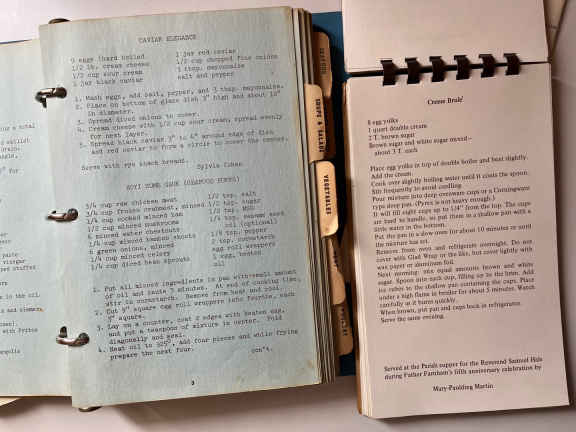 CAVIAR ELEGANCE
9 eggs (hard boiled
1/2 lb. cream cheese
1/2 cup sour cream
1 jar black caviar
1 jar red caviar
1/2 cup chopped fine onions
1 tbsp. mayonnaise
salt and pepper
1. Mash eggs, add salt, pepper, and 1 tbsp. mayonnaise.
2. Place on bottom of glass dish 3" high and about 10"
in diameter.
3. Spread diced onions to cover.
4. Cream cheese with 1/2 cup sour cream, spread evenly
for next layer.
5. Spread black caviar 3" to 4" around edge of dish
and red caviar to form a circle to cover the center.
Serve with rye snack bread.
Sylvia Cohen
3/4 cup raw chicken meat
3/4 cup frozen crabmeat, minced
1/4 cup cooked minced ham
1/2 cup minced mushrooms
6 minced water chestnuts
1/4 cup minced bamboo shoots
6 green onions, minced
1/4 cup minced celery
1/4 cup diced bean sprouts
1/2 tsp. salt
1/2 tsp. sugar
1/2 tsp. MSG
1/4 tsp. sesame seed
oil (optional)
1/8 tsp. pepper
2 tsp. cornstarch
egg roll wrappers
1 egg, beaten
oil
1. Put all minced ingredients in pan with small amount
of oil and saute 3 minutes. At end of cooking time,
stir in cornstarch. Remove from heat and cool.
2. Cut 7" square egg roll wrappers into fourths, each
3" square.
3. Lay on a counter, coat 2 edges with beaten egg,
and put a teaspoon of mixture in center. Fold
diagonally and seal.
4. Heat oil to 325°, add four pieces and while frying
prepare the next four.
con't.
3
SOUPS & SALADS
VEGETABLES
Creme Brulé
8 egg yolks
1 quart double cream
2 T. brown sugar
Brown sugar and white sugar mixed—
about 3 T. each
Place egg yolks in top of double boiler and beat slightly.
Add the cream.
Cook over slightly boiling water until it coats the spoon.
Stir frequently to avoid curdling.
Pour mixture into deep ovenware cups or a Corningware
type deep pan. (Pyrex is not heavy enough.)
It will fill eight cups up to 1/4" from the top. The cups
are hard to handle, so put them in a shallow pan with a
little water in the bottom.
Put the pan in a slow oven for about 10 minutes or until
the mixture has set.
Remove from oven and refrigerate overnight. Do not
cover with Glad Wrap or the like, but cover lightly with
wax paper or aluminum foil.
Next morning: mix equal amounts brown and white
sugar. Spoon into each cup, filling up to the brim. Add
ice cubes to the shallow pan containing the cups. Place
under a high flame in broiler for about 5 minutes. Watch
carefully as it burns quickly.
When brown, put pan and cups back in refrigerator.
Serve the same evening.
Served at the Parish supper for the Reverend Samuel Hale
during Father Farnham's fifth anniversary celebration by
Mary-Paulding Martin